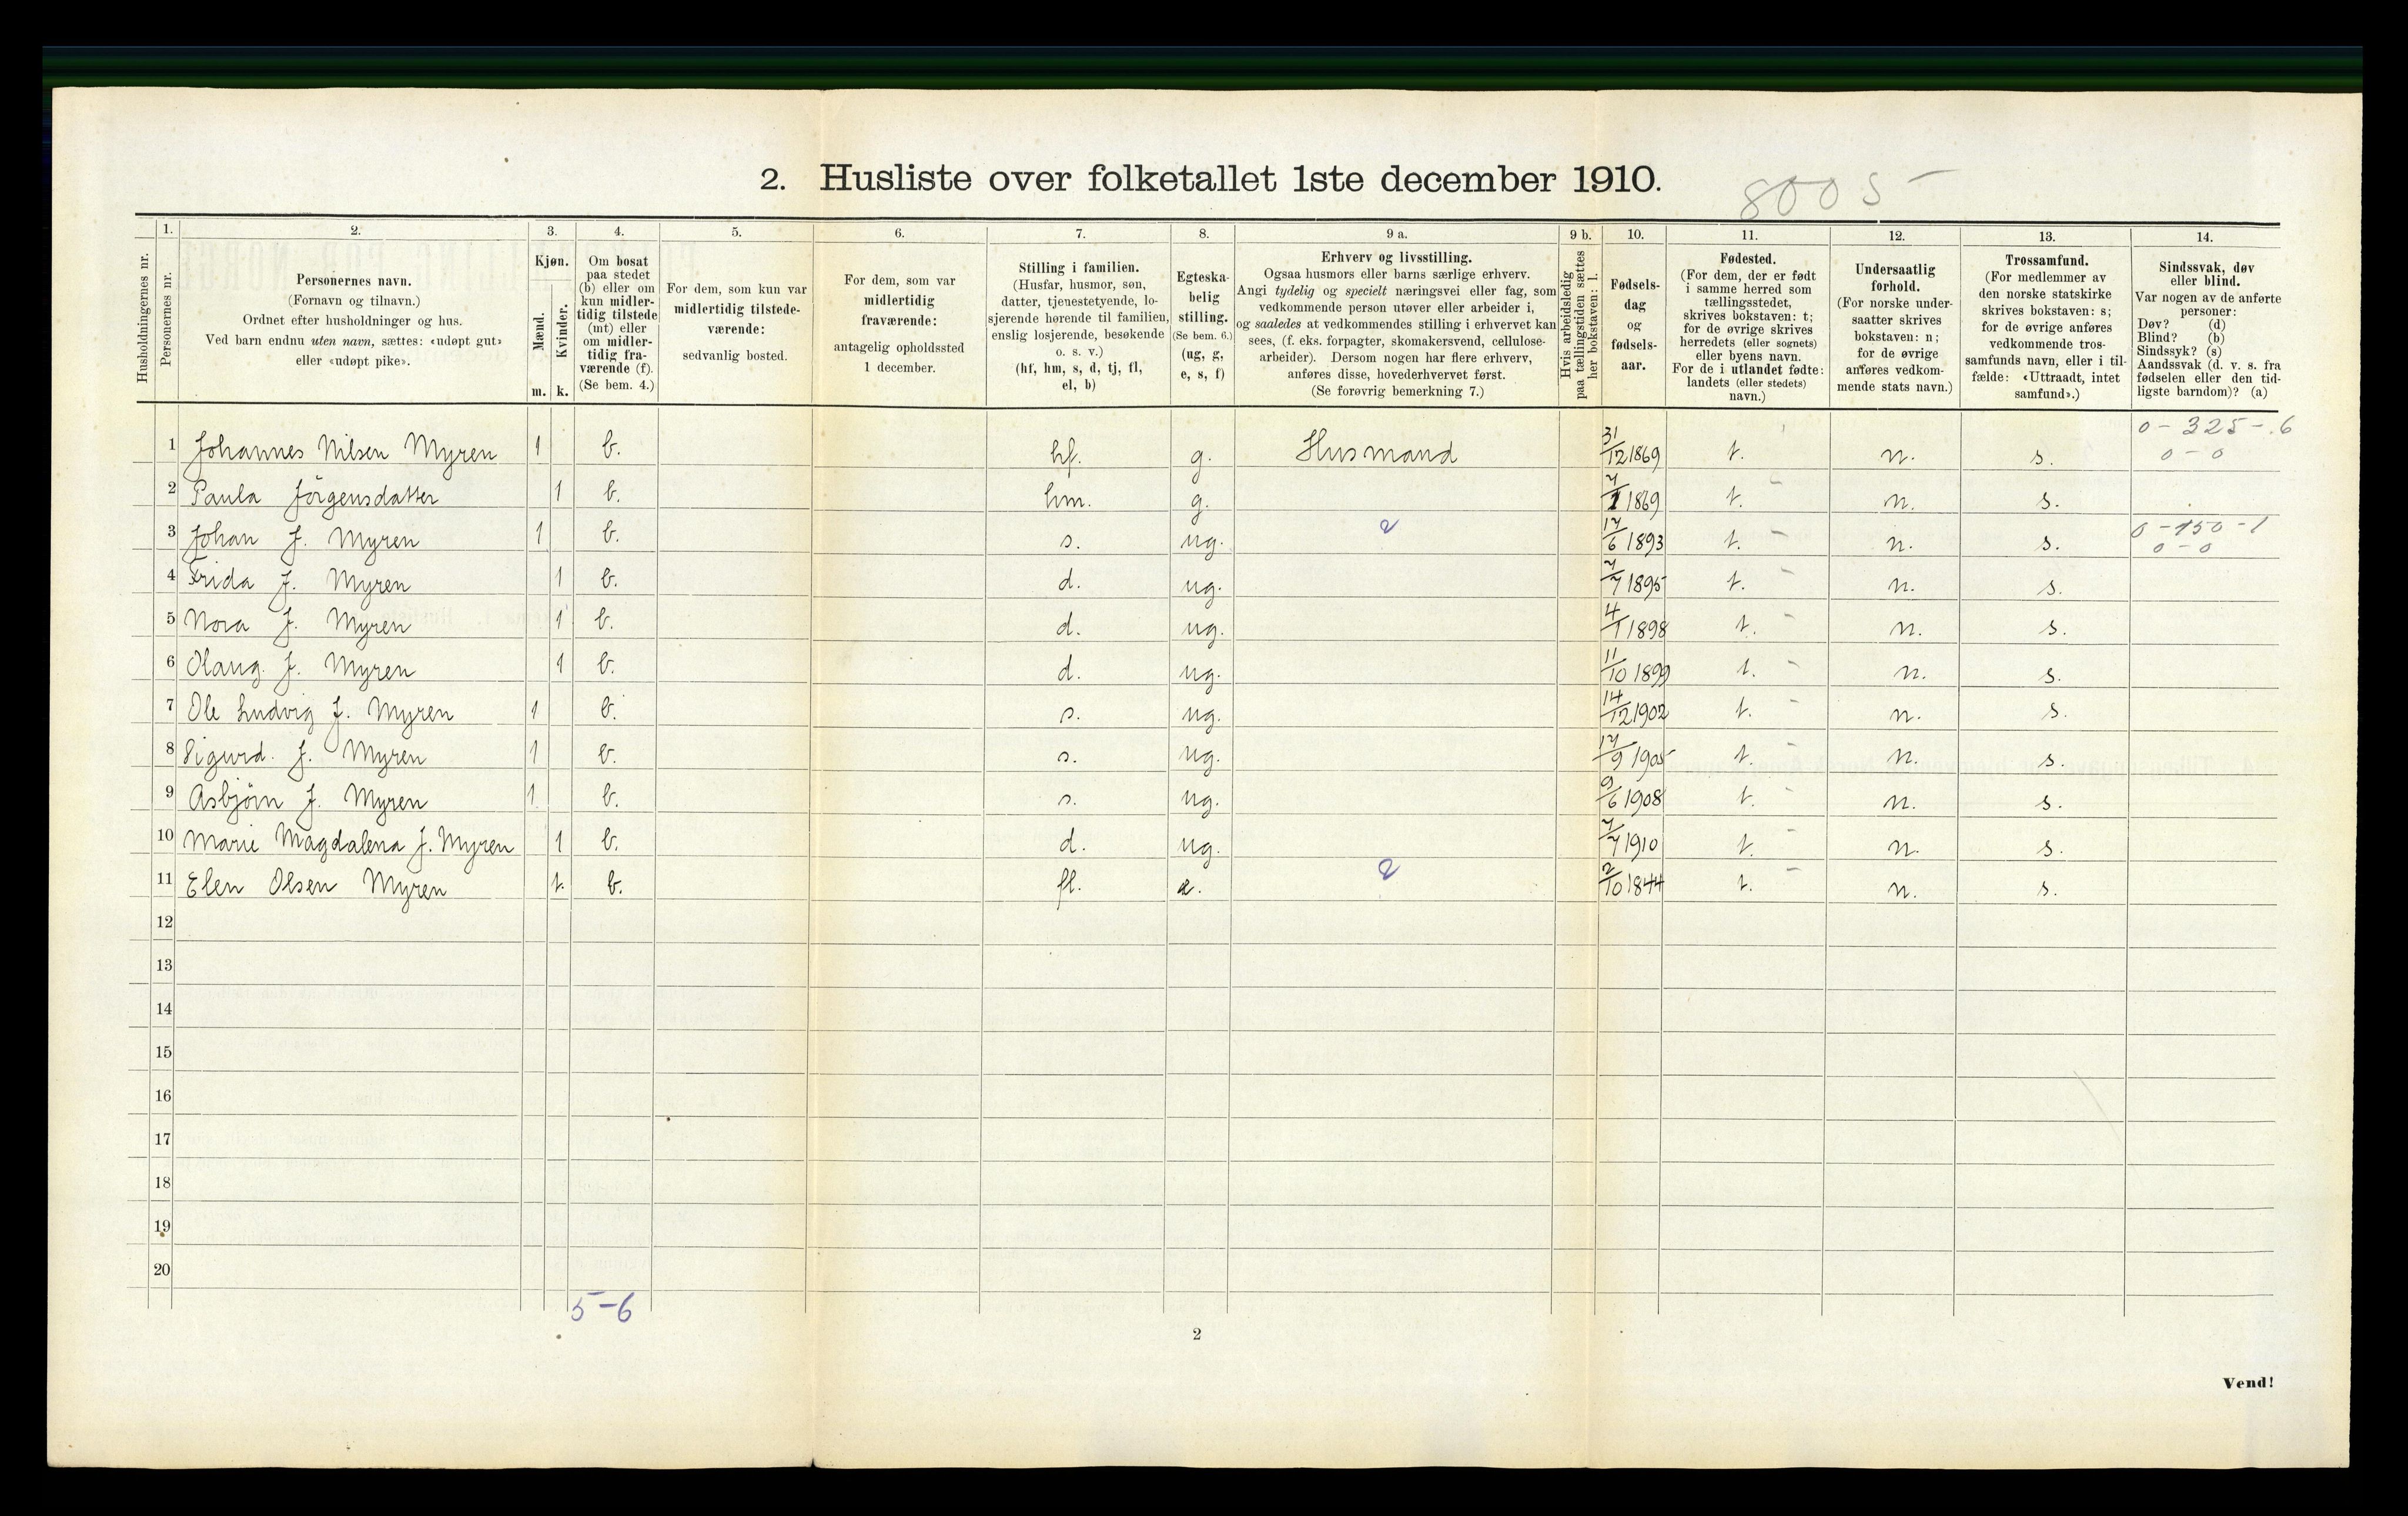 2. Husliste over folketallet 1ste december 1910.
8005 –
Husholdningernes nr.
1. Personernes nr.
2. Personernes navn.
(Fornavn og tilnavn.)
Ordnet efter husholdninger og hus.
Ved barn endnu uten navn, sættes: «udøpt gut»
eller «udøpt pike».
3. Kjøn.
Mænd. Kvinder.
m. k.
4. Om bosat
paa stedet
(b) eller om
kun midler-
tidig tilstede
(mt) eller
om midler-
tidig fra-
værende (f).
(Se bem. 4.)
5. For dem, som kun var
midlertidig tilstede-
værende:
sedvanlig bosted.
6. For dem, som var
midlertidig
fraværende:
antagelig opholdssted
1 december.
7. Stilling i familien.
(Husfar, husmor, søn,
datter, tjenestetyende, lo-
sjerende hørende til familien,
enslig losjerende, besøkende
o. s. v.)
(hf, hm, s, d, tj, fl,
el, b)
8. Egteska-
belig
stilling.
(Se bem. 6.)
(ug, g,
e, s, f)
9 a. Erhverv og livsstilling.
Ogsaa husmors eller barns særlige erhverv.
Angi tydelig og specielt næringsvei eller fag, som
vedkommende person utøver eller arbeider i,
og saaledes at vedkommendes stilling i erhvervet kan
sees, (f. eks. forpagter, skomakersvend, cellulose-
arbeider). Dersom nogen har flere erhverv,
anføres disse, hovederhvervet først.
(Se forøvrig bemerkning 7.)
9 b. Hvis arbeidsledig
paa tællingstiden sættes
her bokstaven: l.
10. Fødsels-
dag
og
fødsels-
aar.
11. Fødested.
(For dem, der er født
i samme herred som
tællingsstedet,
skrives bokstaven: t;
for de øvrige skrives
herredets (eller sognets)
eller byens navn.
For de i utlandet fødte:
landets (eller stedets)
navn.)
12. Undersaatlig
forhold.
(For norske under-
saatter skrives
bokstaven: n;
for de øvrige
anføres vedkom-
mende stats navn.)
13. Trossamfund.
(For medlemmer av
den norske statskirke
skrives bokstaven: s;
for de øvrige anføres
vedkommende tros-
samfunds navn, eller i til-
fælde: «Uttraadt, intet
samfund».)
14. Sindssvak, døv
eller blind.
Var nogen av de anførte
personer:
Døv? (d)
Blind? (b)
Sindssyk? (s)
Aandssvak (d. v. s. fra
fødselen eller den tid-
ligste barndom)? (a)
0 – 325 – 6
1 Johannes Nilsen Myren 1 b. hf. g. Husmand 31/12 1869 t. n. s. 0 – 0
2 Paula Jörgensdatter 1 b. hm. g. 7/1 1869 t. – n. s.
3 Johan J. Myren 1 b. s. ug. 17/6 1893 t. – n. s. 0 – 150 – 1
0 – 0
4 Frida J. Myren 1 b. d. ug. 7/7 1895 t. – n. s.
5 Nora J. Myren 1 b. d. ug. 4/1 1898 t. – n. s.
6 Olaug. J. Myren 1 b. d. ug. 11/10 1899 t. – n. s.
7 Ole Ludvig J. Myren 1 b. s. ug. 14/12 1902 t. – n. s.
8 Sigurd. J. Myren 1 b. s. ug. 17/9 1905 t. – n. s.
9 Asbjörn J. Myren 1 b. s. ug. 9/6 1908 t. – n. s.
10 Marie Magdalena J. Myren 1 b. d. ug. 7/7 1910 t. – n. s.
11 Elen Olsen Myren 1 b. fl. e. 2/10 1844 t. – n. s.
12
13
14
15
16
17
18
19
20
5 – 6
2
Vend!